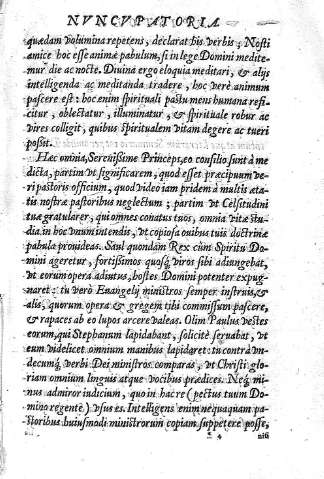 NVNCVPATORIA
quædam volumina repetens, declarat his verbis; Nosti
amice hoc esse animæ pabulum, si in lege Domini medite-
mur die ac nocte. Diuina ergo eloquia meditari, & alijs
intelligenda ac meditanda tradere, hoc verè animum
pascere est: hoc enim spirituali pastu mens humana refi-
citur, oblectatur, illuminatur, & spirituale robur ac
vires colligit, quibus spiritualem vitam degere ac tueri
possit.
Hæc omnia, Serenissime Princeps, eo consilio sunt à me
dicta, partim vt significarem, quod esset præcipuum ve-
ri pastoris officium, quod video iam pridem à multis æta-
tis nostræ pastoribus neglectum; partim vt Celsitudini
tuæ gratularer, qui omnes conatus tuos, omnia vitæ stu-
dia in hoc vnum intendis, vt copiosa ouibus tuis doctrinæ
pabula prouideas. Saul quondam Rex cùm Spiritu Do-
mini ageretur, fortissimos quosq; viros sibi adiungebat,
vt eorum opera adiutus, hostes Domini potenter expug-
naret: tu verò Euangelij ministros semper instruis, &
alis, quorum opera & gregem tibi commissum pascere,
& rapaces ab eo lupos arcere valeas. Olim Paulus vestes
eorum, qui Stephanum lapidabant, solicitè seruabat, vt
eum videlicet omnium manibus lapidaret: tu contrà vn-
decumq; verbi Dei ministros comparas, vt Christi glo-
riam omnium linguis atque vocibus prædices. Neq; mi-
nus admiror iudicium, quo in hac re (pectus tuum Do-
mino regente) vsus es. Intelligens enim nequaquam pa-
storibus huiusmodi ministrorum copiam suppetere posse,
4 nisi